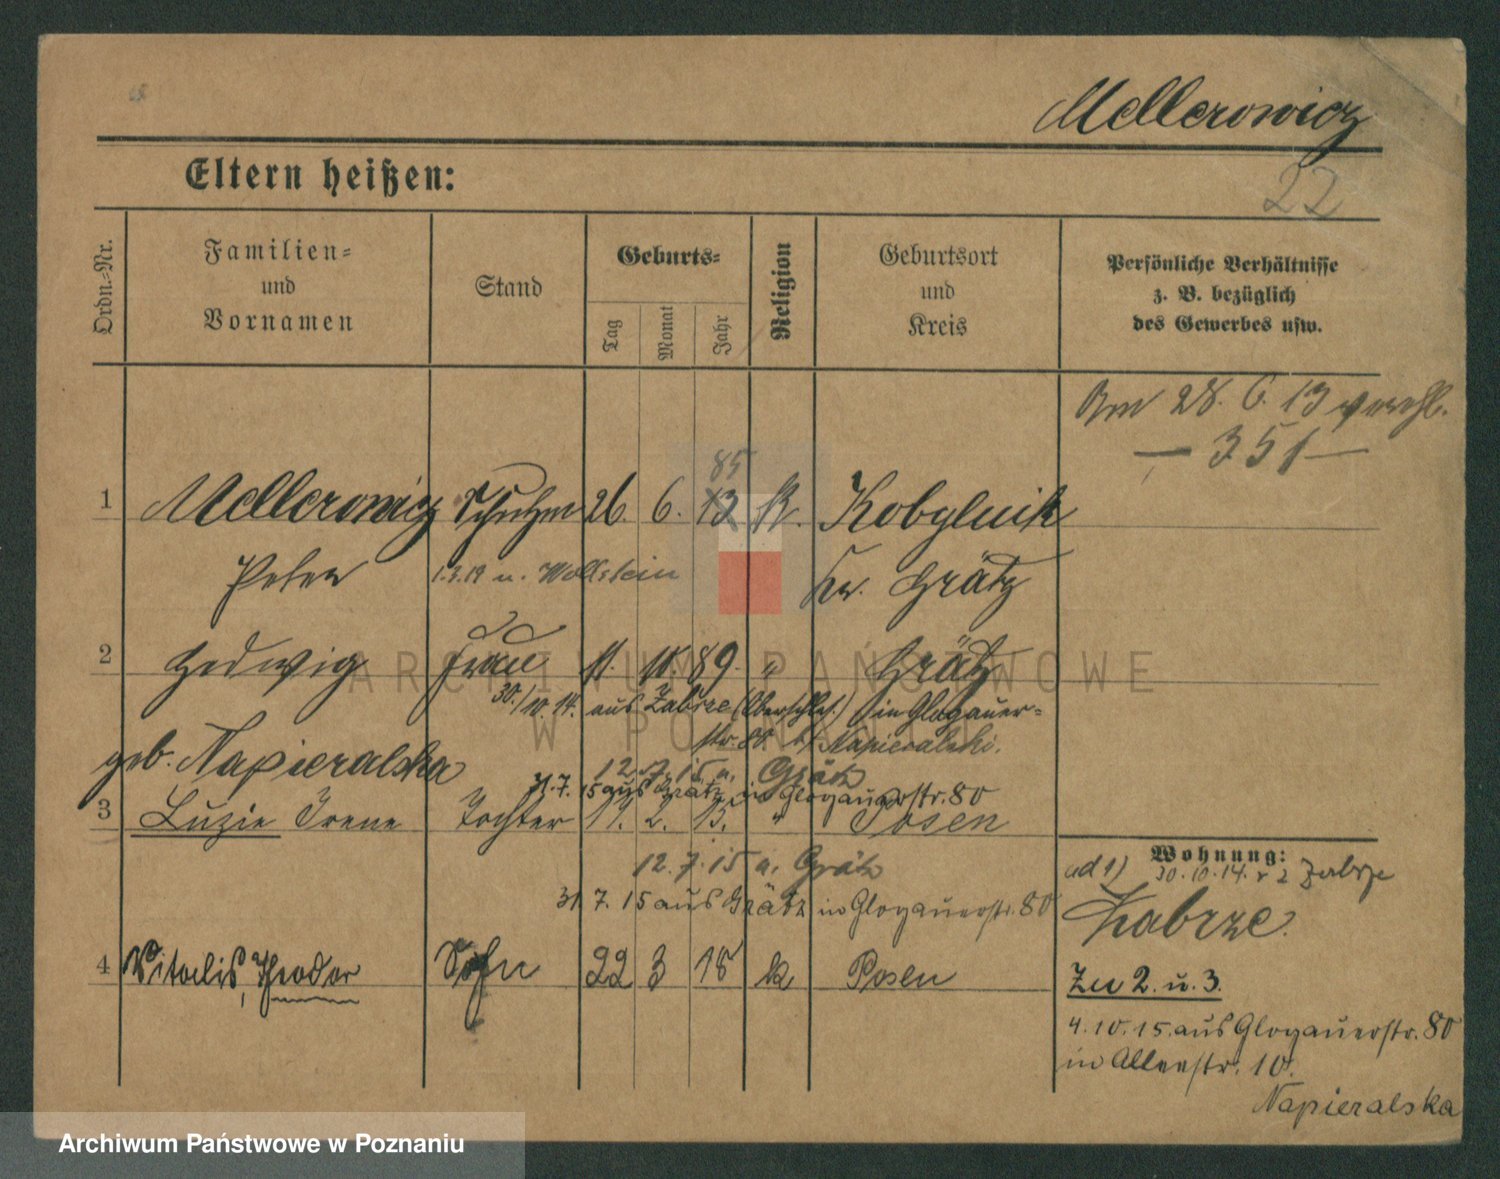 Mellerowicz
22
Eltern heißen:
Ordn.-Nr.
Familien-
und
Vornamen
Stand
Geburts-
Tag
Monat
Jahr
Religion
Geburtsort
und
Kreis
Persönliche Verhältnisse
z. B. bezüglich
des Gewerbes usw.
Am 28. 6. 13
— 351 —
85
1 Mellerowicz Schuhm 26. 6. 13 K. Kobylnik
Peter 1.3.19 n. Wollstein Kr. Grätz
2 Hedwig Frau 11. 10. 89 " Grätz
30./10. 14. aus Zabrze (Oberschles.) in Glogauer-
str. 80 b/ Napieralski.
geb. Napieralska 12. 7. 15 n. Grätz
31. 7. 15 aus Grätz in Glogauerstr. 80
3 Luzie Irene Tochter 11. 2. 13. " Posen
12. 7. 15 n. Grätz
31. 7. 15 aus Grätz in Glogauerstr. 80
4 Vitalis, Theodor Sohn 22 3 18 k Posen
Wohnung:
ad 1) 30. 10. 14. Zabrze
Zabrze.
Zu 2. u. 3.
4. 10. 15. aus Glogauerstr. 80
in Alleestr. 10.
Napieralska
ARCHIWUM PAŃSTWOWE
W POZNANIU
Archiwum Państwowe w Poznaniu